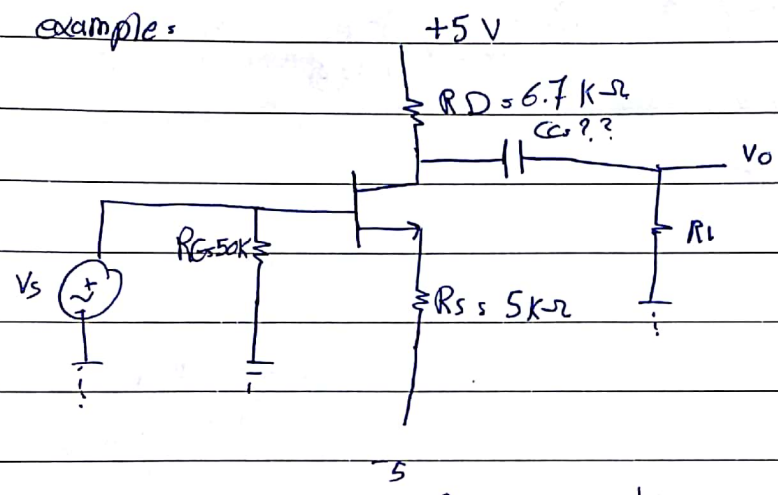 example:
+5 V
RD = 6.7 KΩ
Cc = ??
Vo
RG=50K
RL
Vs
Rs = 5KΩ
-5